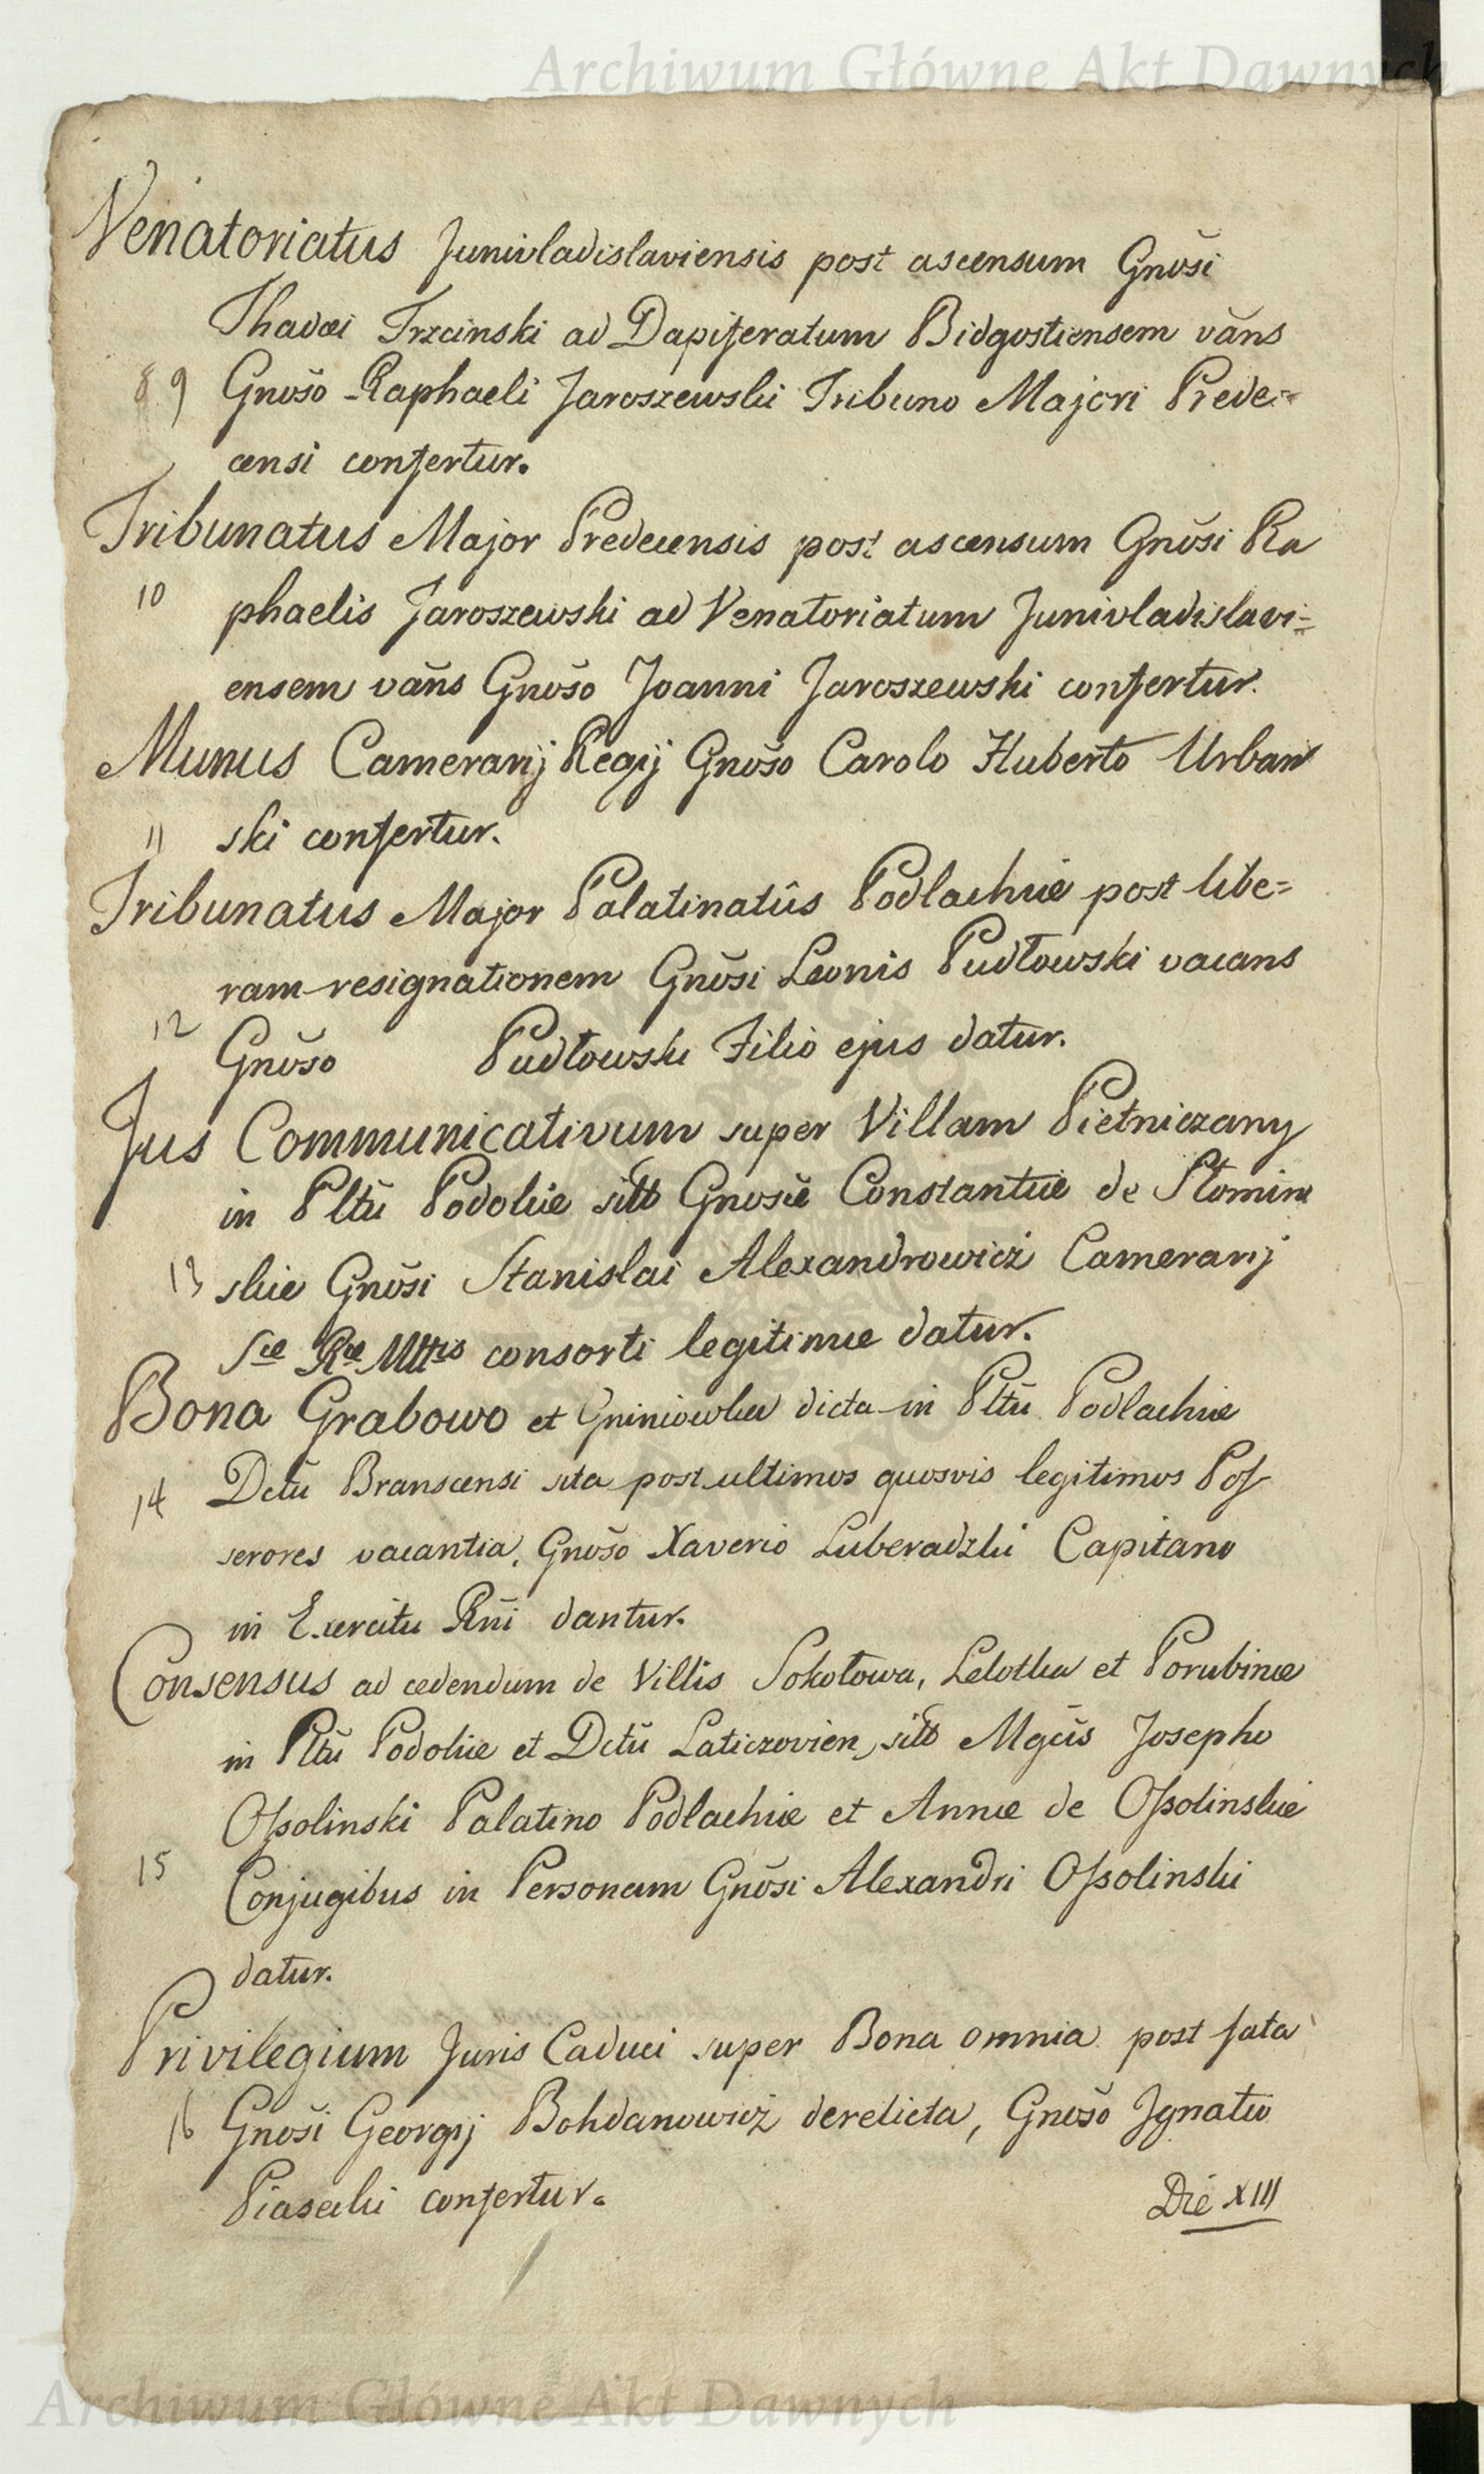 Archiwum Główne Akt Dawnych
Venatoriatus Junivladislaviensis post ascensum Gnosi
Thadæi Trzcinski ad Dapiferatum Bidgostiensem vāns
8 9) Gnoso Raphaeli Jaroszewski Tribuno Majori Prede=
censi confertur.
Tribunatus Major Predecensis post ascensum Gnosi Ra
10 phaelis Jaroszewski ad Venatoriatum Junivladislavi=
ensem vāns Gnoso Joanni Jaroszewski confertur.
Munus Camerarij Regij Gnoso Carolo Huberto Urban
11 ski confertur.
Tribunatus Major Palatinatûs Podlachiæ post libe=
ram resignationem Gnosi Leonis Pudłowski vacans
12 Gnoso Pudłowski Filio ejus datur.
Jus Communicativum super Villam Pietniczany
in Pltū Podoliæ sitt Gnosæ Constantiæ de Słomin
13 skie Gnosi Stanislai Alexandrowicz Camerarij
Sæ Ræ Mttis consorti legitimæ datur.
Bona Grabowo et Gniniowka dicta in Pltū Podlachiæ
14 Dctū Branscensi sita post ultimos quosvis legitimos Pos
sesores vacantia, Gnoso Xaverio Luberadzki Capitano
in Exercitu Rni dantur.
Consensus ad cedendum de Villis Sokołowa, Lelotka et Porubinæ
in Pltū Podoliæ et Dctū Laticzovien, sitt Mgcis Josepho
Ossolinski Palatino Podlachiæ et Annæ de Ossolinskie
15 Conjugibus in Personam Gnosi Alexandri Ossolinski
datur.
Privilegium Juris Caduci super Bona omnia post fata
16 Gnosi Georgij Bohdanowicz derelicta, Gnoso Jgnatio
Piasecki confertur.
Die XIII
Archiwum Główne Akt Dawnych